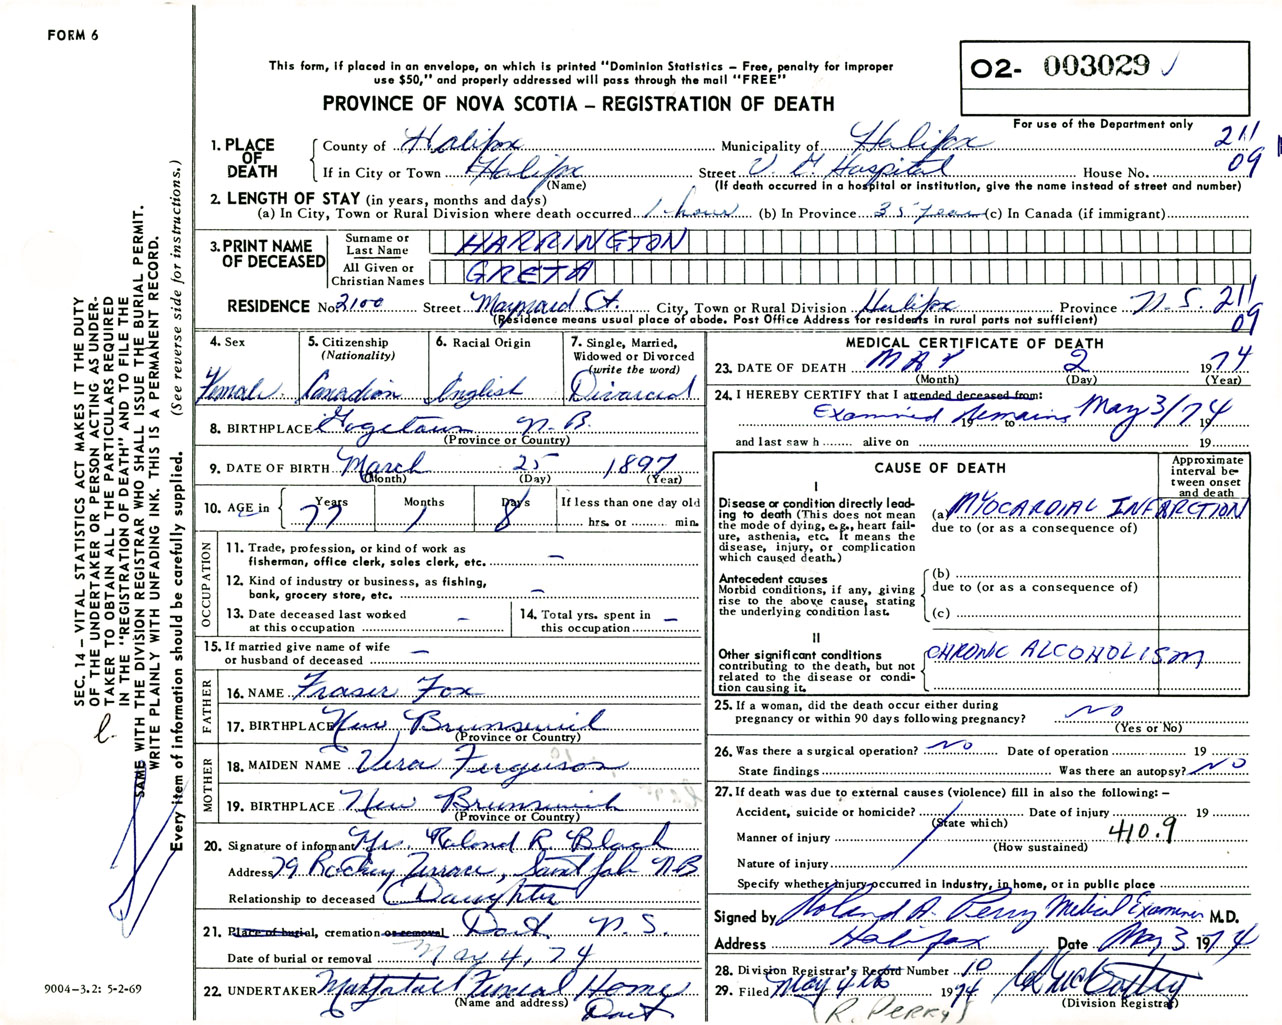 FORM 6
This form, if placed in an envelope, on which is printed "Dominion Statistics – Free, penalty for improper
use $50," and properly addressed will pass through the mail "FREE"
PROVINCE OF NOVA SCOTIA – REGISTRATION OF DEATH
02- 003029
For use of the Department only
1. PLACE OF DEATH
County of Halifax Municipality of Halifax 211
If in City or Town Halifax Street V G Hospital House No. 09
(Name) (If death occurred in a hospital or institution, give the name instead of street and number)
2. LENGTH OF STAY (in years, months and days)
(a) In City, Town or Rural Division where death occurred 1-hour (b) In Province 35 years (c) In Canada (if immigrant)
3. PRINT NAME OF DECEASED
Surname or Last Name HARRINGTON
All Given or Christian Names GRETA
RESIDENCE No 2100 Street Maynard St. City, Town or Rural Division Halifax Province N.S. 211
(Residence means usual place of abode. Post Office Address for residents in rural parts not sufficient) 09
4. Sex Female
5. Citizenship (Nationality) Canadian
6. Racial Origin English
7. Single, Married, Widowed or Divorced (write the word) Divorced
8. BIRTHPLACE Gagetown N.B.
(Province or Country)
9. DATE OF BIRTH March 25 1897
(Month) (Day) (Year)
10. AGE in Years 77 Months 1 Days 8 If less than one day old
hrs. or min.
OCCUPATION
11. Trade, profession, or kind of work as
fisherman, office clerk, sales clerk, etc. –
12. Kind of industry or business, as fishing,
bank, grocery store, etc. –
13. Date deceased last worked
at this occupation –
14. Total yrs. spent in
this occupation –
15. If married give name of wife
or husband of deceased –
FATHER
16. NAME Fraser Fox
17. BIRTHPLACE New Brunswick
(Province or Country)
MOTHER
18. MAIDEN NAME Vera Ferguson
19. BIRTHPLACE New Brunswick
(Province or Country)
20. Signature of informant Mrs. Roland R. Black
Address 79 Rockey Terrace, Saint John N B
Relationship to deceased Daughter
21. Place of burial, cremation or removal Dart N.S.
Date of burial or removal May 4, 74
22. UNDERTAKER Mattatall Funeral Home
(Name and address) Dart
MEDICAL CERTIFICATE OF DEATH
23. DATE OF DEATH MAY 2 1974
(Month) (Day) (Year)
24. I HEREBY CERTIFY that I attended deceased from:
Examined Remains May 3/74
19 to 19
and last saw h alive on 19
CAUSE OF DEATH
Approximate interval between onset and death
I
Disease or condition directly leading to death (This does not mean the mode of dying, e.g., heart failure, asthenia, etc. It means the disease, injury, or complication which caused death.)
(a) MYOCARDIAL INFARCTION
due to (or as a consequence of)
Antecedent causes
Morbid conditions, if any, giving rise to the above cause, stating the underlying condition last.
(b)
due to (or as a consequence of)
(c)
II
Other significant conditions contributing to the death, but not related to the disease or condition causing it.
CHRONIC ALCOHOLISM
25. If a woman, did the death occur either during
pregnancy or within 90 days following pregnancy? NO
(Yes or No)
26. Was there a surgical operation? NO Date of operation 19
State findings Was there an autopsy? NO
27. If death was due to external causes (violence) fill in also the following: –
Accident, suicide or homicide? Date of injury 19
(State which)
Manner of injury 410.9
(How sustained)
Nature of injury
Specify whether injury occurred in industry, in home, or in public place
Signed by Roland A. Perry Medical Examiner M.D.
Address Halifax Date May 3 1974
28. Division Registrar's Record Number 10
29. Filed May 4th 1974
(Division Registrar)
(R. PERRY)
SEC. 14 – VITAL STATISTICS ACT MAKES IT THE DUTY
OF THE UNDERTAKER OR PERSON ACTING AS UNDER-
TAKER TO OBTAIN ALL THE PARTICULARS REQUIRED
IN THE "REGISTRATION OF DEATH" AND TO FILE THE
SAME WITH THE DIVISION REGISTRAR WHO SHALL ISSUE THE BURIAL PERMIT.
WRITE PLAINLY WITH UNFADING INK. THIS IS A PERMANENT RECORD.
Every item of information should be carefully supplied. (See reverse side for instructions.)
9004-3.2: 5-2-69